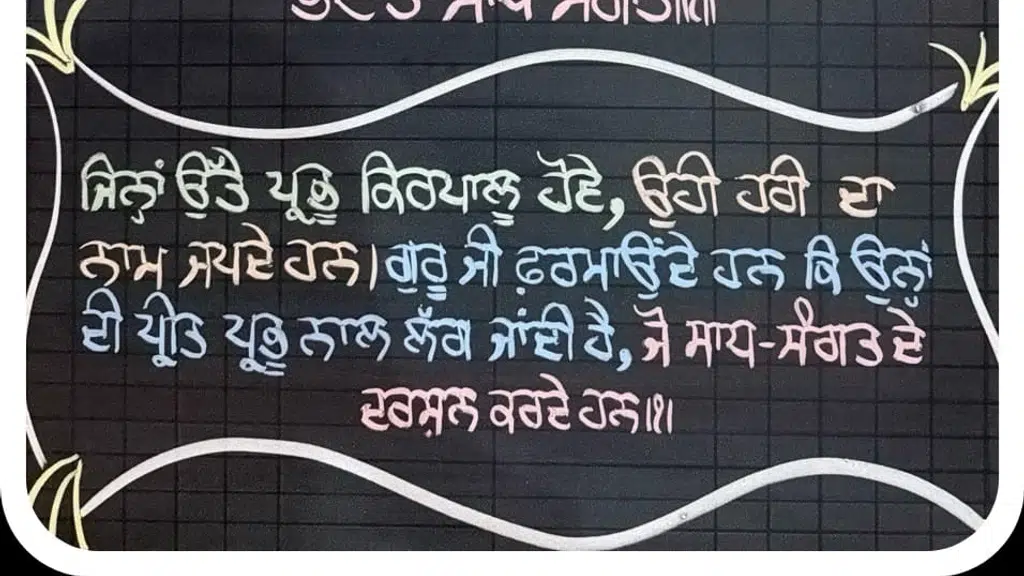 ਭੇਟਤ ਸਾਧ ਸੰਗਤਿ॥੧॥
ਜਿਨ੍ਹਾਂ ਉੱਤੇ ਪ੍ਰਭੂ ਕਿਰਪਾਲੂ ਹੋਵੇ, ਉਹੀ ਹਰੀ ਦਾ
ਨਾਮ ਜਪਦੇ ਹਨ। ਗੁਰੂ ਜੀ ਫ਼ਰਮਾਉਂਦੇ ਹਨ ਕਿ ਉਨ੍ਹਾਂ
ਦੀ ਪ੍ਰੀਤ ਪ੍ਰਭੂ ਨਾਲ ਲੱਗ ਜਾਂਦੀ ਹੈ, ਜੋ ਸਾਧ-ਸੰਗਤ ਦੇ
ਦਰਸ਼ਨ ਕਰਦੇ ਹਨ॥੧॥